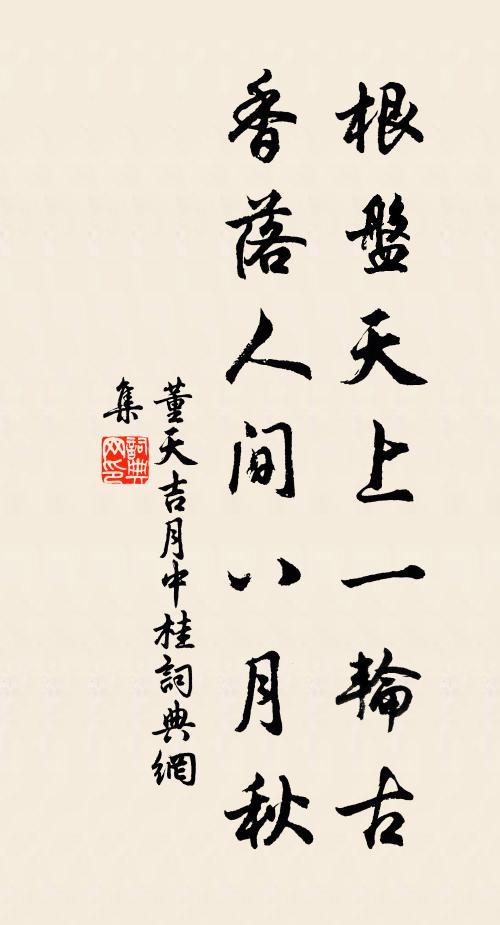 根盤天上一輪古
香落人間八月秋
董天吉月中桂詞典網
集
詞典
网印